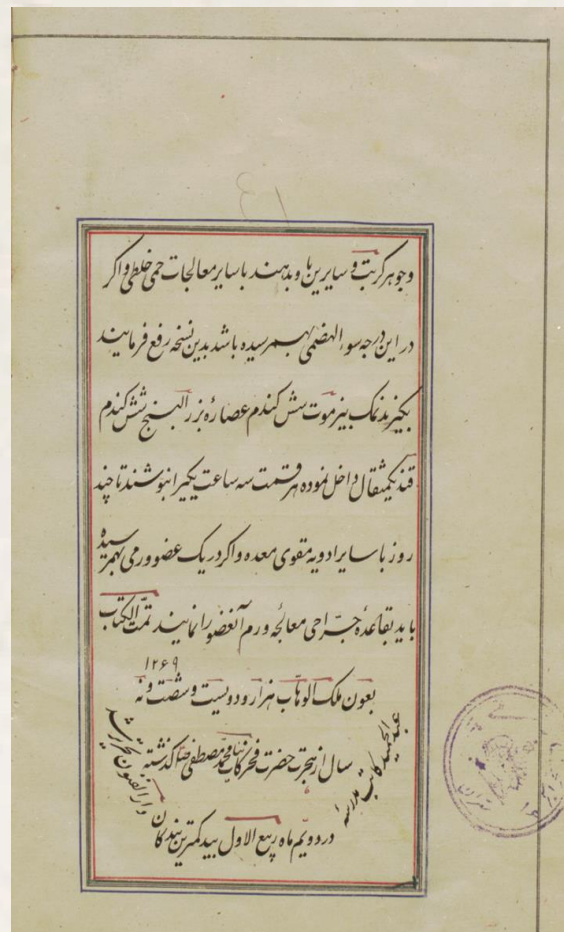 وجوهر کربت و سایرین ها و بدهند با سایر معالجات حمی خلطی و اکر
در این درجه سوء الهضمی بهمرسیده باشد بدین نسخه رفع فرمایند
بکیرند نمک بیزموت شش کندم عصارهٔ بزر البنج شش کندم
قند یکمثقال داخل نموده هر قسمت سه ساعت یکبار بنوشند تا چند
روز با سایر ادویه مقوی معده و اکر در یک عضو ورمی بهمرسیده
باید بقاعدهٔ جراحی معالجه ورم آنعضو را نمایند تمت الکتاب
۱۲۶۹
بعون ملک الوهاب هزار و دویست و شصت و نه
سال از هجرت حضرت فخر کاینات محمد مصطفی کذشته
در دویم ماه ربیع الاول بید کمترین بندکان
عبد الحمید کاتب مدرسه
دار الفنون تحریر شد